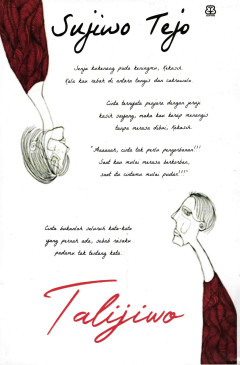 Sujiwo Tejo
Senja kukenang pada keningmu, Kekasih.
Kala kau rebah di antara langit dan cakrawala
Cinta ternyata penjara dengan jeruji
kasih sayang, maka kau kerap menangis
tanpa merasa dibui, Kekasih.
"Aaaaaah, cinta tak perlu pengorbanan!!!
Saat kau mulai merasa berkorban,
saat itu cintamu mulai pudar!!!"
Cinta bukanlah seluruh kata-kata
yang pernah ada, sebab rasaku
padamu tak tentang kata.
Talijiwo